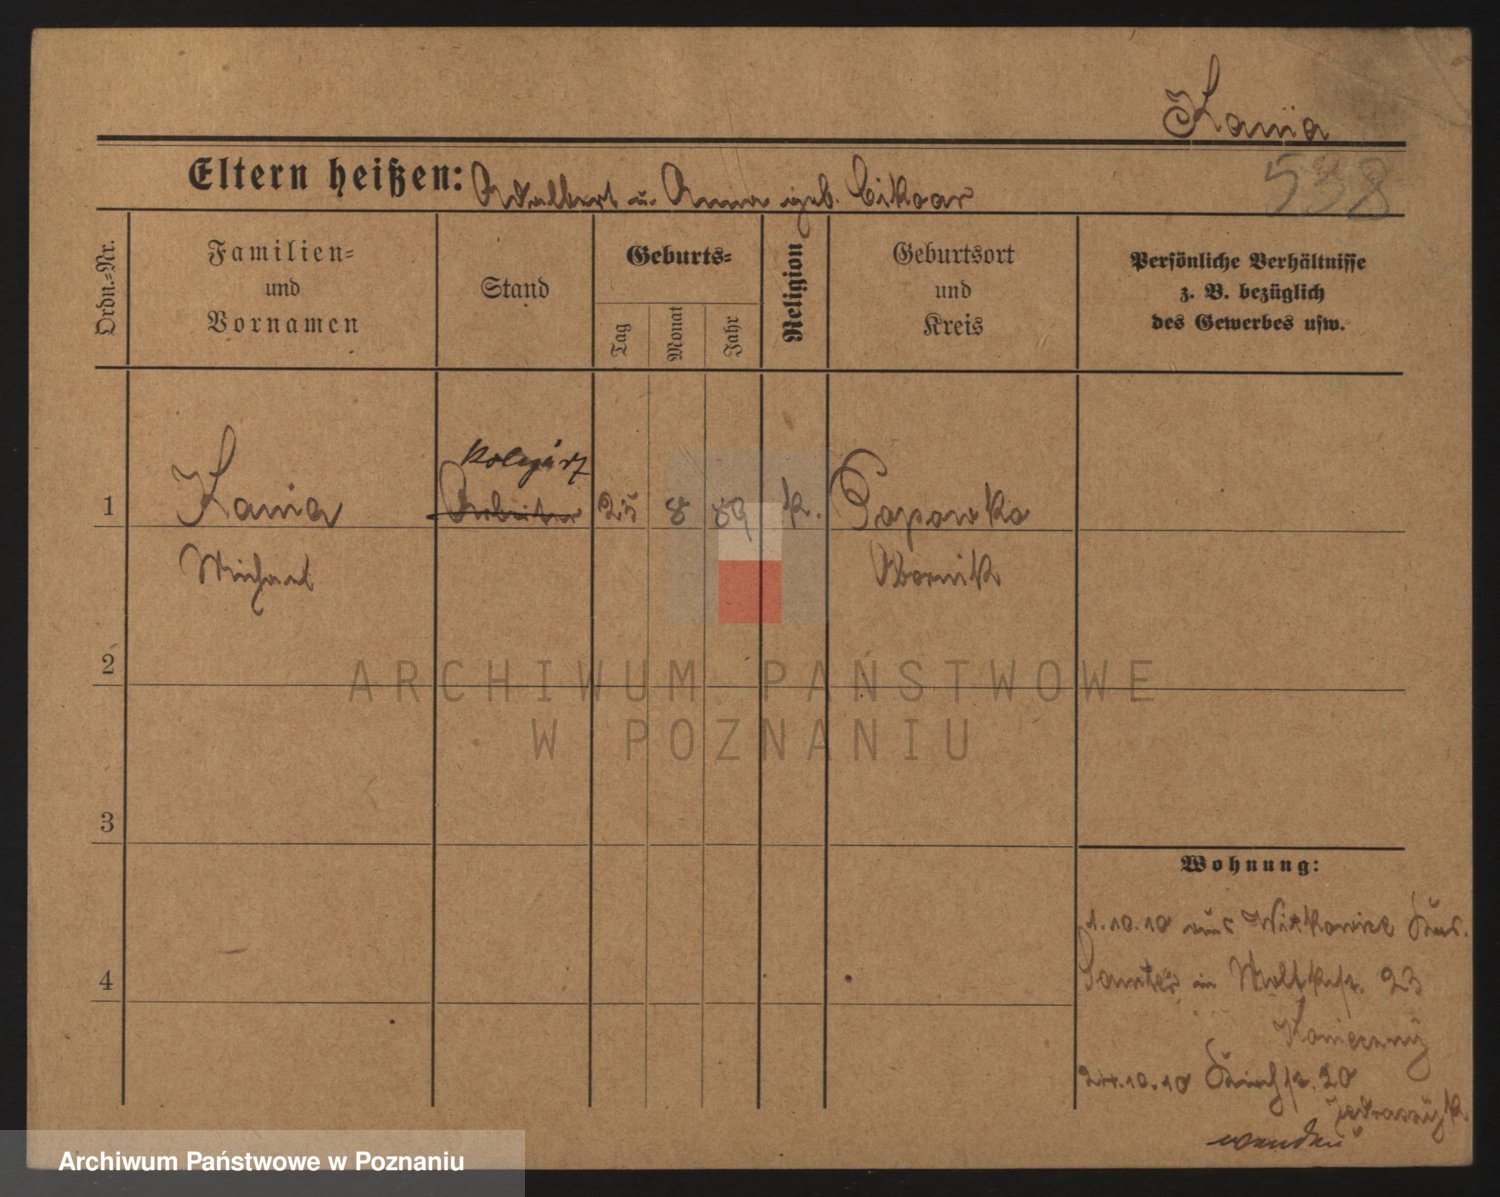 Kania
538
Eltern heißen: Adalbert u. Anna geb. Cikoar
Ordn.-Nr.
Familien-
und
Vornamen
Stand
Geburts-
Tag
Monat
Jahr
Religion
Geburtsort
und
Kreis
Persönliche Verhältnisse
z. B. bezüglich
des Gewerbes usw.
1
Kania
Michael
Arbeiter
25
8
89
k.
Popowko
Obornik
2
3
4
Wohnung:
1.10.10 aus Witkowice
Samter in Moltkestr. 23
Konieczny
24.10.10 20
wenden
ARCHIWUM PAŃSTWOWE
W POZNANIU
Archiwum Państwowe w Poznaniu